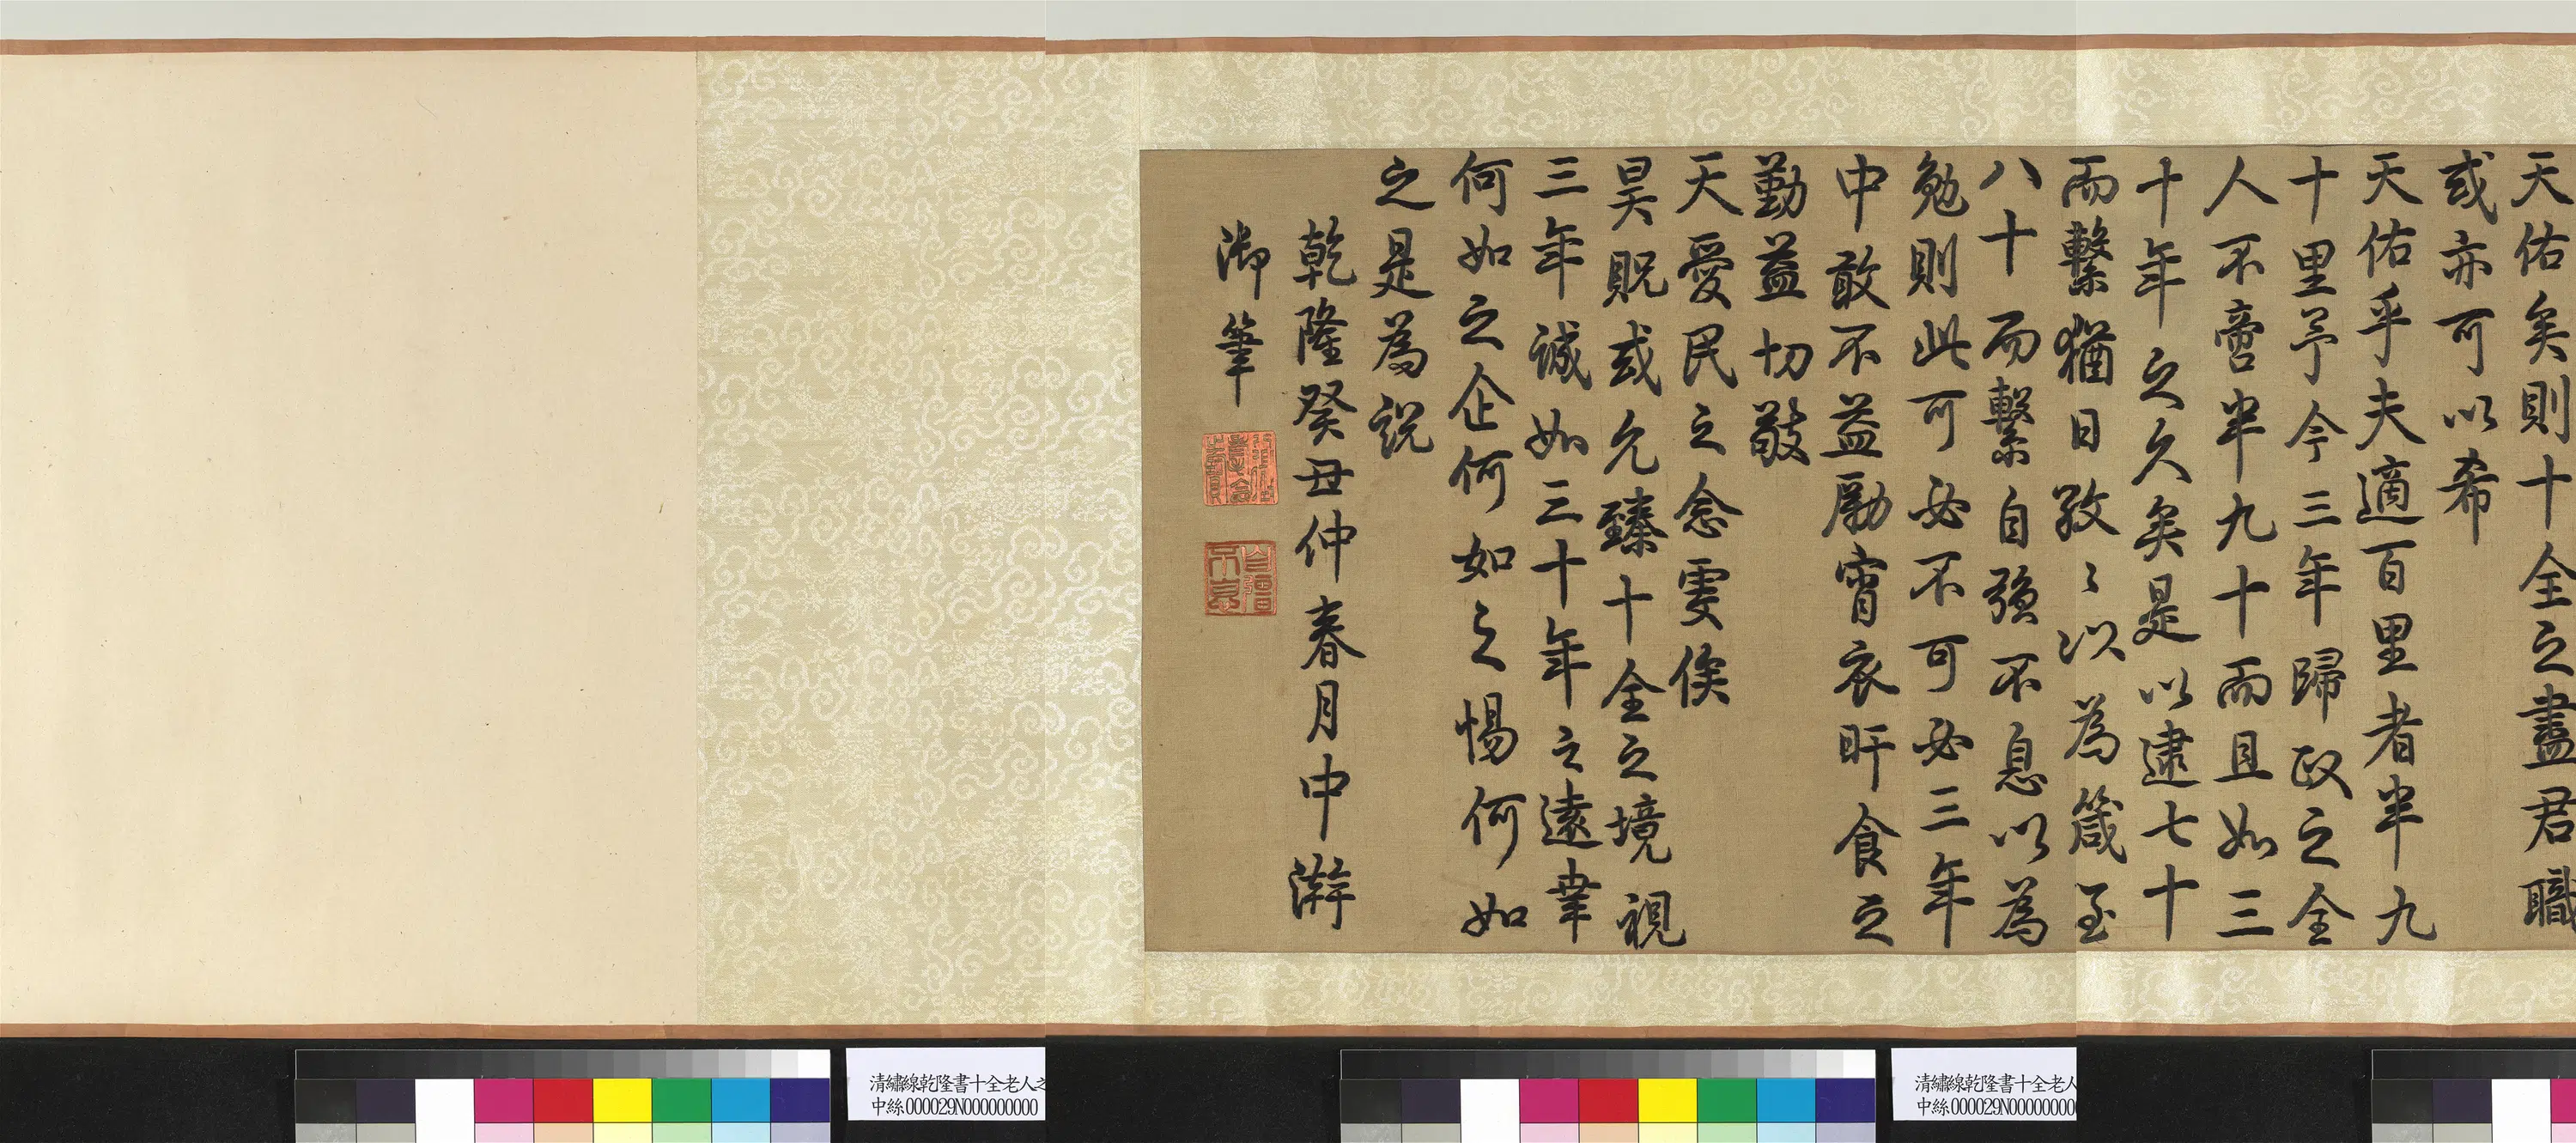 天佑矣則十全之盡君職
或亦可以希
天佑乎夫適百里者半九
十里予今三年歸政之全
人不啻半九十而且如三
十年之久矣是以逮七十
而繫猶日孜〻以為箴至
八十而繫自強不息以為
勉則此可必不可必三年
中敢不益勵宵衣旰食之
勤益切敬
天愛民之念雯俟
昊貺或允臻十全之境視
三年誠如三十年之遠幸
何如之企何如之惕何如
之是為說
乾隆癸丑仲春月中澣
御筆
自彊不息
清繡線乾隆書十全老人之
中絲000029N000000000
清繡線乾隆書十全老人
中絲000029N00000000